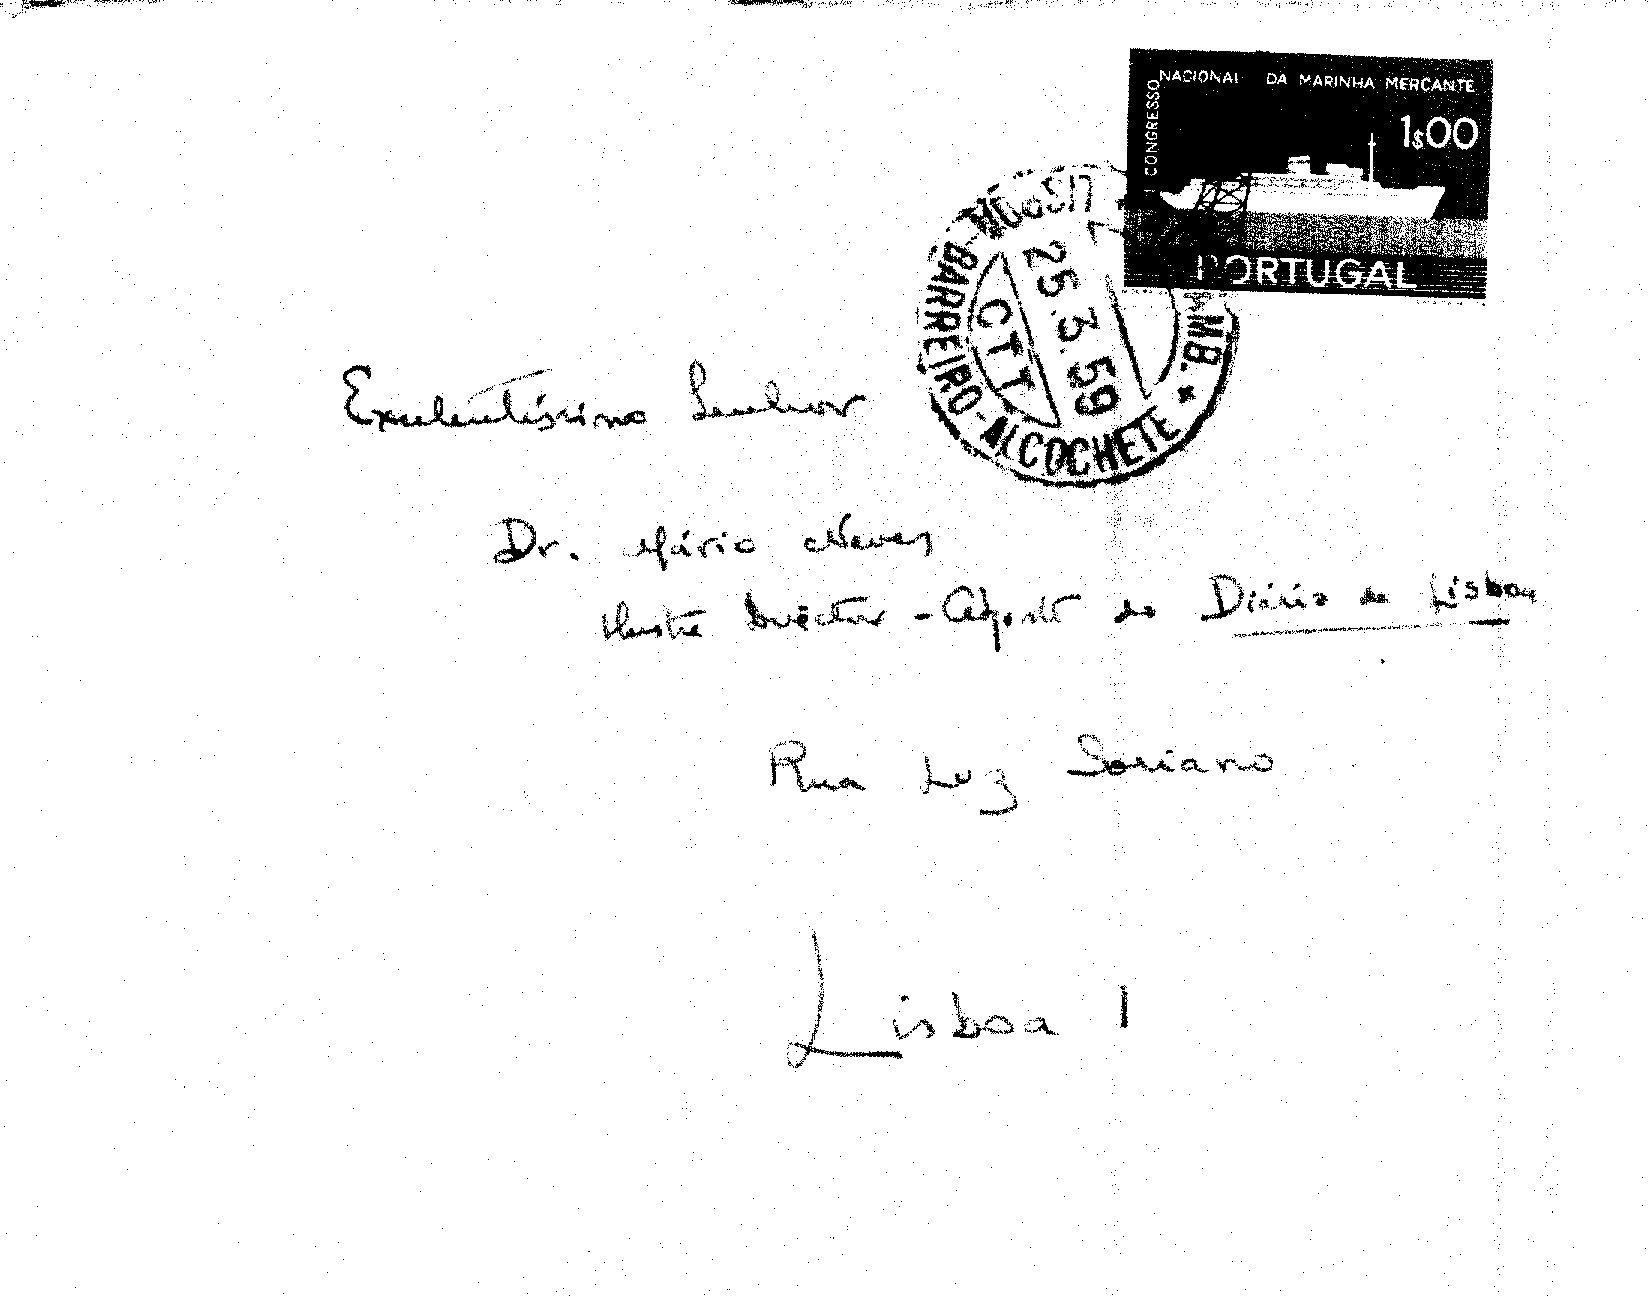 I CONGRESSO NACIONAL DA MARINHA MERCANTE
1$00
PORTUGAL
AMB.
BARREIRO-ALCOCHETE *
CTT
25.3.59
Excelentíssimo Senhor
Dr. Mário Neves
Ilustre Director-Adjunto do Diário de Lisboa
Rua Luz Soriano
Lisboa 1